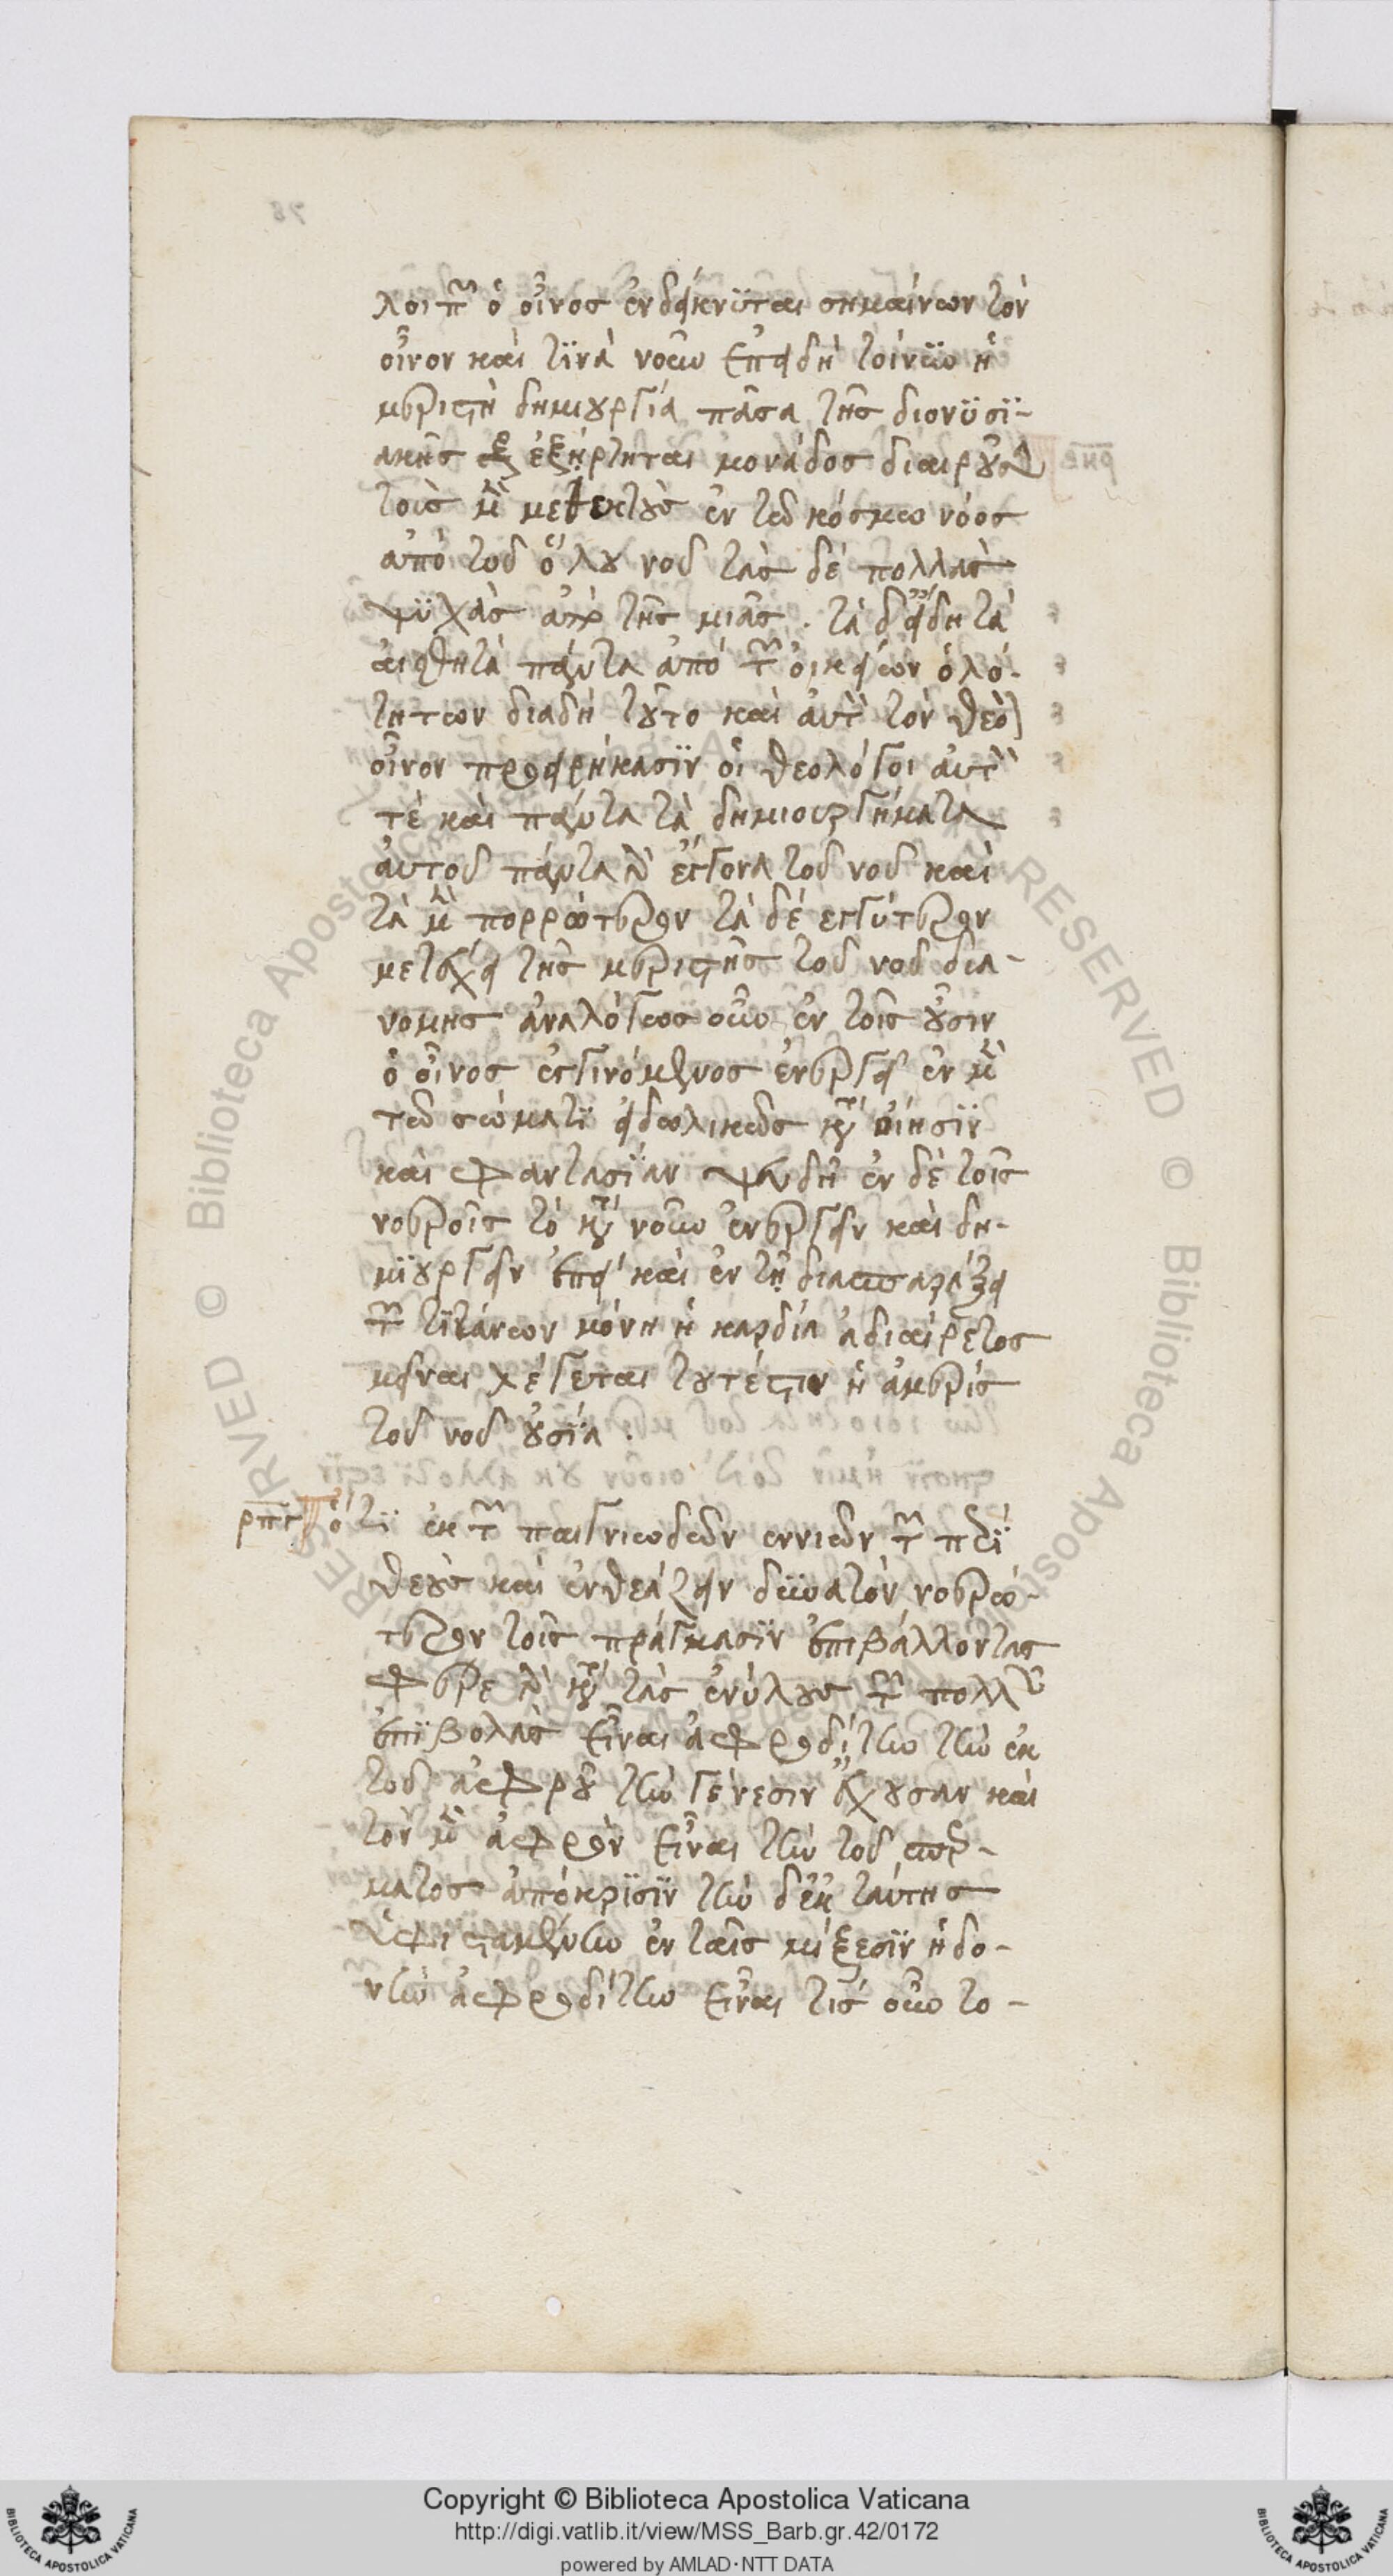 λοιπὸν ὁ οἶνος ἐνδείκνυται σημαίνων τὸν
οἶνον καὶ τινὰ νοῦν ἐπειδὴ τοίνυν ἡ
μεριστὴ δημιουργία πᾶσα τῆς διονυσι-
ακῆς ἐξήρτηται μονάδος διαιροῦσα
τοὺς μὲν μεθεκτοὺς ἐν τῶ κόσμω νόος
ἀπὸ τοῦ ὅλου νοῦ τὰς δὲ πολλὰς
ψυχὰς ἀπὸ τῆς μιᾶς. τὰ δ' εἴδη τὰ
αἰσθητὰ πάντα ἀπὸ τῶν οἰκείων ὁλο-
τήτων διαδὴ τοῦτο καὶ αὐτὸν τὸν θεὸν
οἶνον προσειρήκασιν οἱ θεολόγοι αὐτόν
τε καὶ πάντα τὰ δημιουργήματα
αὐτοῦ πάντα γὰρ ἔγγονα τοῦ νοῦ καὶ
τὰ μὲν πορρώτερον τὰ δὲ ἐγγύτερον
μετέχει τῆς μεριστῆς τοῦ νοῦ δια-
νομῆς ἀναλόγως οὖν ἐν τοῖς οὖσιν
ὁ οἶνος ἐγγινόμενος ἐνεργεῖ ἐν μὲν
τῶ σώματι εἰδωλικῶς κατὰ οἴησιν
καὶ φαντασίαν ψευδῆ ἐν δὲ τοῖς
νοεροῖς τὸ κατὰ νοῦν ἐνεργεῖν καὶ δη-
μιουργεῖν ἐπεὶ καὶ ἐν τῇ διασπαράξει
τῶν τιτάνων μόνη ἡ καρδία ἀδιαίρετος
μεῖναι λέγεται τουτέστιν ἡ ἀμερὴς
τοῦ νοῦ οὐσία.
ρπγ ὅτι ἐκ τῶν παιγνιωδῶν ἐννοιῶν τῶν περὶ
θεοὺς καὶ ἐνθεάζειν δυνατὸν νοερώ-
τερον τοῖς πράγμασιν ἐπιβάλλοντας
φέρε γὰρ κατὰ τὰς ἐνύλους τῶν πολλῶν
ἐπιβολὰς εἶναι ἀφροδίτην τὴν ἐκ
τοῦ ἀφροῦ τὴν γένεσιν ἔχουσαν καὶ
τὸν μὲν ἀφρὸν εἶναι τὴν τοῦ σπέρ-
ματος ἀπόκρισιν τὴν δ' ἐκ ταύτης
ἐφισταμένην ἐν ταῖς μίξεσιν ἡδο-
νὴν ἀφροδίτην εἶναι τίς οὖν το-
Copyright © Biblioteca Apostolica Vaticana
http://digi.vatlib.it/view/MSS_Barb.gr.42/0172
powered by AMLAD·NTT DATA